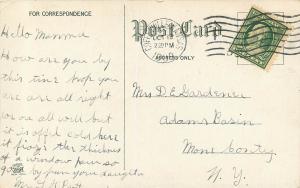 FOR CORRESPONDENCE
Post Card
ADDRESS ONLY
Hello Mamma
How are you by
this time hope you
are all right
we are all well but
it is cold here
it the thickness
of a window pane so
good by from your daughter
Mrs
2 30 PM
Mrs D E Dardenee
Adams Basin
Monr Conty
N. Y.